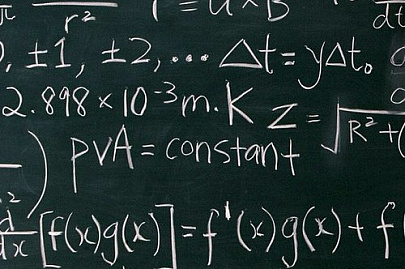 r²
, ±1, ±2, ... Δt = yΔt₀
2.898 × 10⁻³ m.K Z = √R² + (
ρvA = constant
d/dx [f(x)g(x)] = f'(x)g(x) + f